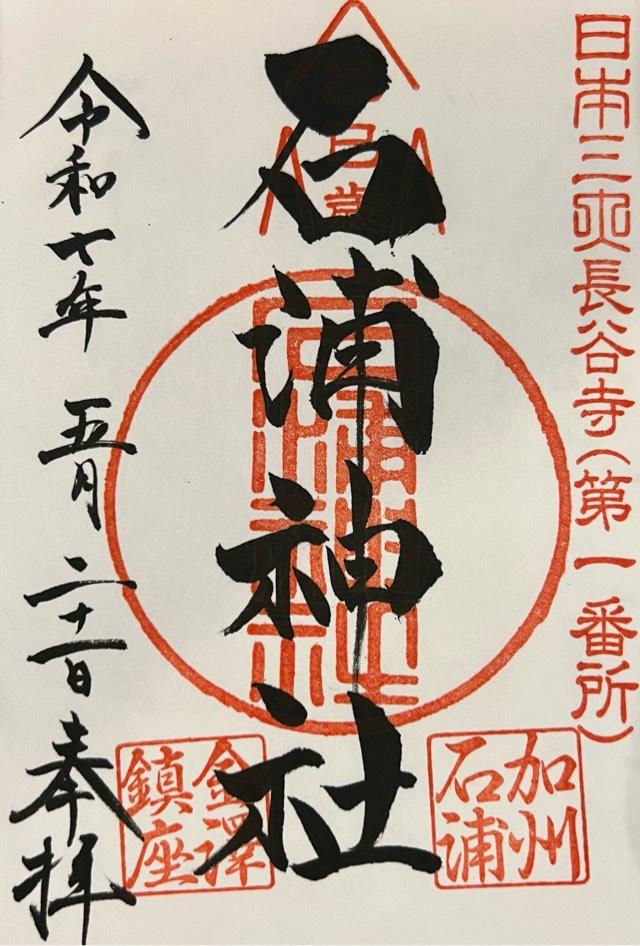 日本三大長谷寺(第一番所)
加州
石浦
乙巳歳
石浦神社
金澤
鎮座
令和七年 五月 二十一日 奉拝